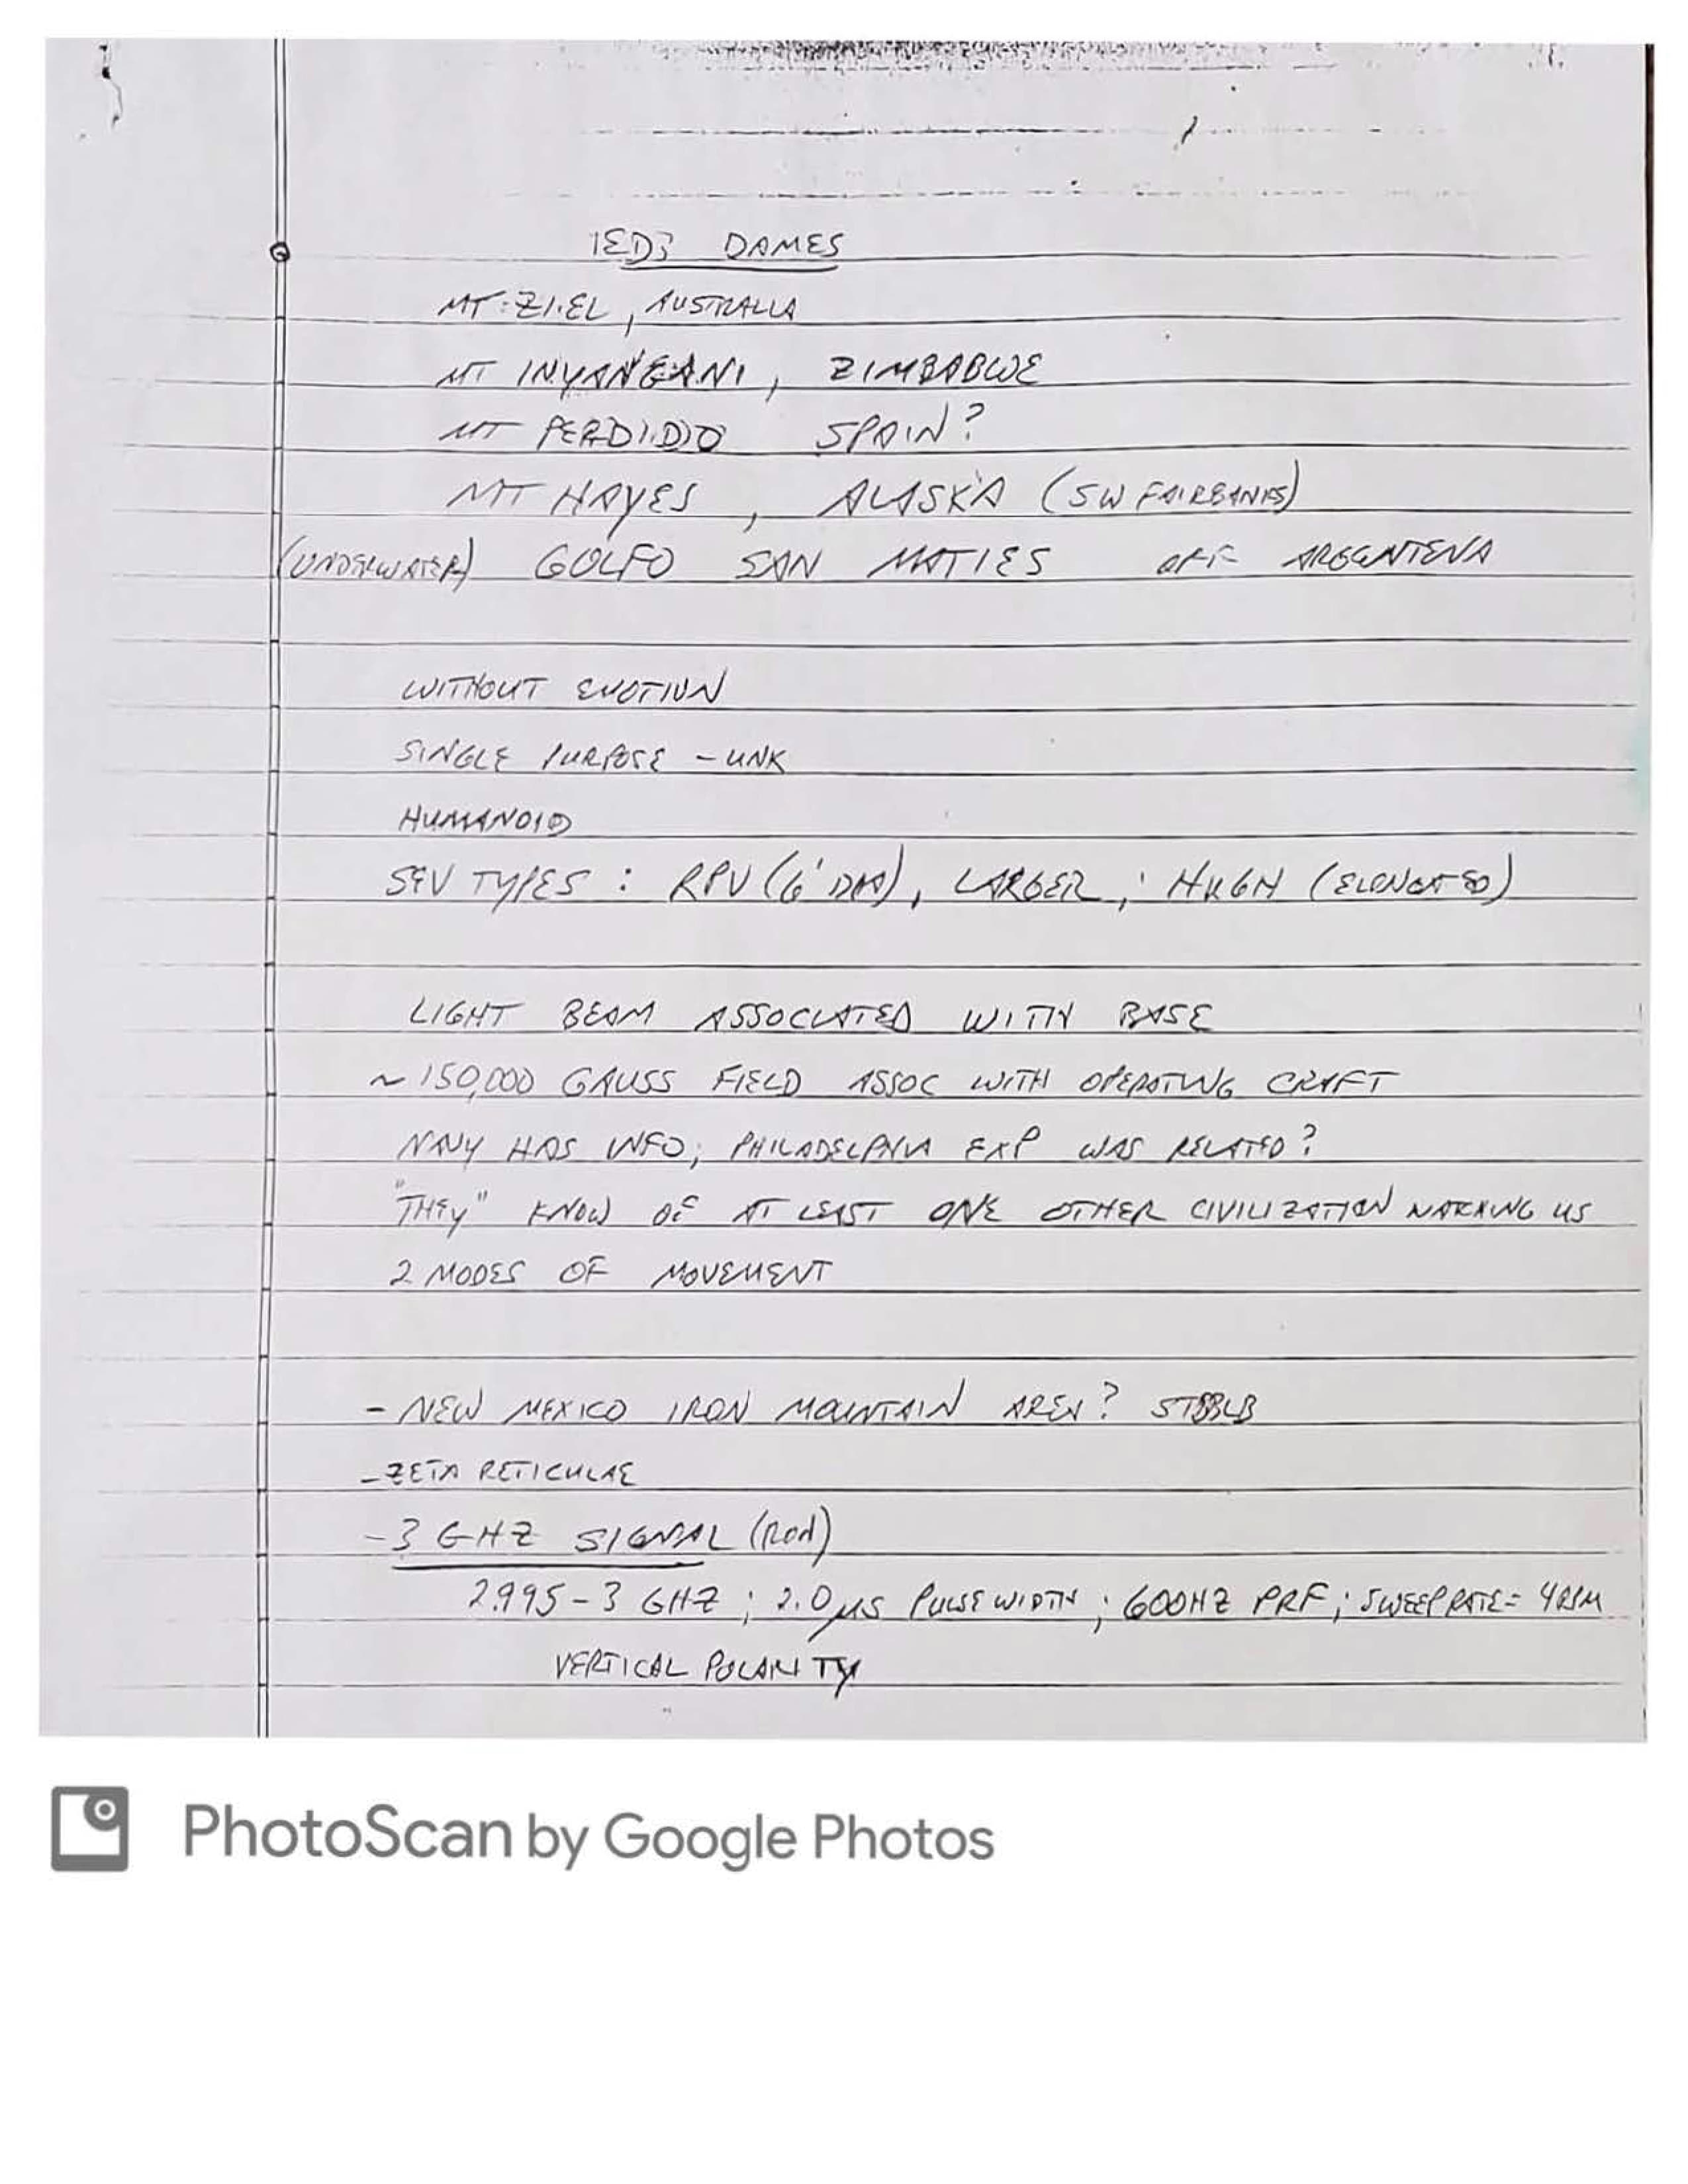 DAMES
MT. ZIEL, AUSTRALIA
MT INYANGANI, ZIMBABWE
MT PERDIDO SPAIN?
MT HAYES, ALASKA (SW FAIRBANKS)
(UNDERWATER) GOLFO SAN MATIES OFF ARGENTENA
WITHOUT EMOTION
SINGLE PURPOSE - UNK
HUMANOID
TYPES: RPV (6' DIA), LARGER, (ELONGATED)
LIGHT BEAM ASSOCIATED WITH BASE
~150,000 GAUSS FIELD ASSOC WITH OPERATING CRAFT
NAVY HAS INFO; PHILADELPHIA EXP WAS RELATED?
"THEY" KNOW OF AT LEAST ONE OTHER CIVILIZATION US
2 MODES OF MOVEMENT
- NEW MEXICO IRON MOUNTAIN AREA?
- ZETA RETICULAE
- 3 GHZ SIGNAL
2.995 - 3 GHZ; 2.0 μS PULSE WIDTH; 600HZ PRF; SWEEP RATE =
VERTICAL POLARITY
PhotoScan by Google Photos